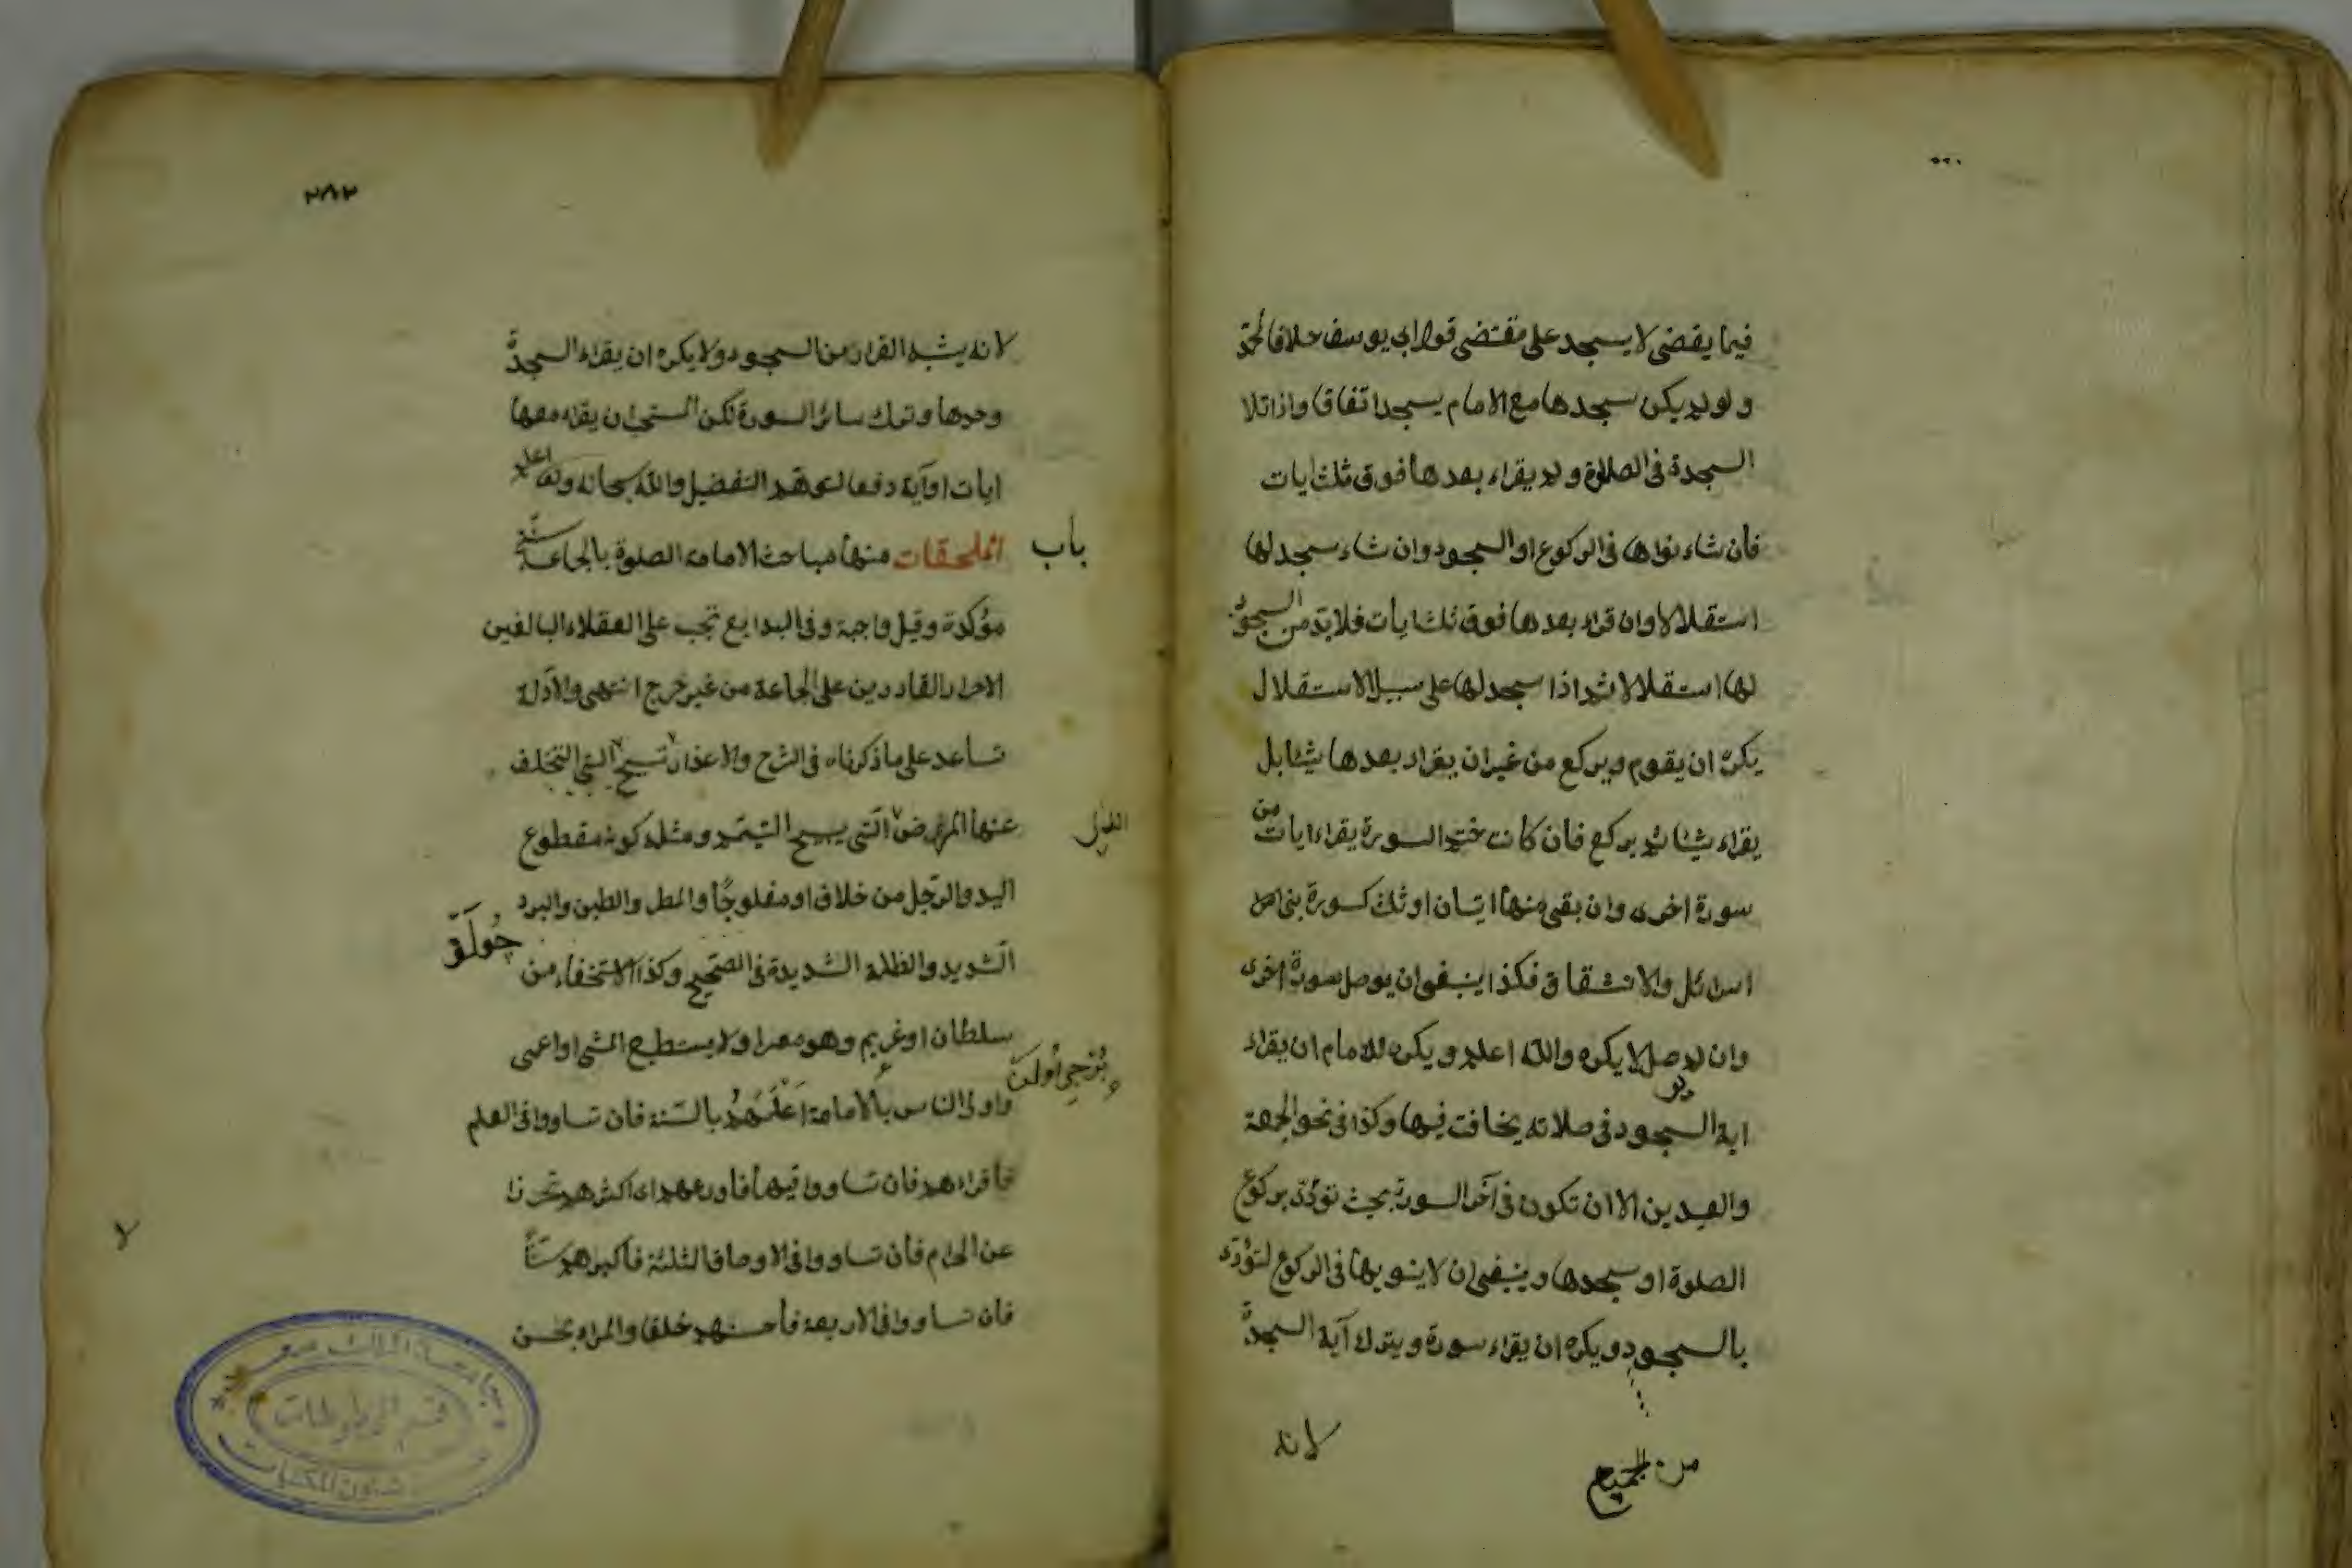 فيما يقضى لا يسجد على مقتضى قول ابى يوسف خلافا لمحمد
ولو لم يكن سجدها مع الامام يسجد اتفاقا واذا تلا
السجدة فى الصلاة ولم يقراء بعدها فوق ثلث ايات
فان شاء نواها فى الركوع او السجود وان شاء سجد لها
استقلالا وان قراء بعدها فوق ثلث ايات فلا بد من السجود
لها استقلالا ثم اذا سجد لها على سبيل الاستقلال
يكره ان يقوم ويركع من غير ان يقراء بعدها شيئا بل
يقراء شيئا ثم يركع فان كانت ختم السورة يقراء ايات من
سورة اخرى وان بقى منها ايتان او ثلث كسورة بنى
اسرائل والانشقاق فكذا ينبغى ان يوصل سورة اخرى
وان لم يصل لا يكره والله اعلم ويكره للامام ان يقراء
اية السجود فى صلاته يخافت فيها وكذا فى نحو الجمعة
والعيدين الا ان تكون فى آخر السورة بحيث تؤدى بركوع
الصلوة او سجدها وينبغى ان لا ينويها فى الركوع لتؤدى
بالسجود ويكره ان يقراء سورة ويترك آية السجدة
من الجميع
لانه
٢٨٢
لانه يشبه الفرار من السجود ولا يكره ان يقراء السجدة
وحدها وترك سائر السورة لكن المستحب ان يقراء معها
ايات او آية دفعا لتوهم التفضيل والله سبحانه وتعالى اعلم
باب
الملحقات منها مباحث الامامة الصلوة بالجماعة سنة
مؤكدة وقيل واجبة وفى البدايع تجب على العقلاء البالغين
الاحرار القادرين على الجماعة من غير حرج انتهى والادلة
تساعد على ما ذكرناه فى الشرح والاعذار تبيح التى التخلف
عنها المرض التى يبيح التيمم ومثله كونه مقطوع
اليد والرجل من خلاف او مفلوجا والمطر والطين والبرد
چولق
الشديد والظلمة الشديدة فى الصحيح وكذا الاستخفاء من
سلطان او غريم وهو معسر او لا يستطيع المشى او اعمى
واولى الناس بالامامة اعلمهم بالسنة فان تساووا فى العلم
فاقراءهم فان تساووا فيها فاورعهم اى اكثرهم تحرزا
عن الحرام فان تساووا فى الاوصاف الثلثة فاكبرهم سنا
فان تساووا فى الاربعة فأحسنهم خلقا والمراد بحسن
لا
جامعة الملك سعود
قسم المخطوطات
شئون المكتبات